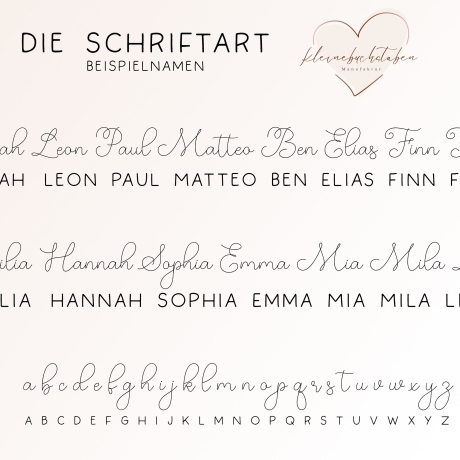 DIE SCHRIFTART
BEISPIELNAMEN
kleinebuchstaben
Manufaktur
ah Leon Paul Matteo Ben Elias Finn
AH LEON PAUL MATTEO BEN ELIAS FINN F
ilia Hannah Sophia Emma Mia Mila L
LIA HANNAH SOPHIA EMMA MIA MILA LI
a b c d e f g h i j k l m n o p q r s t u v w x y z
A B C D E F G H I J K L M N O P Q R S T U V W X Y Z